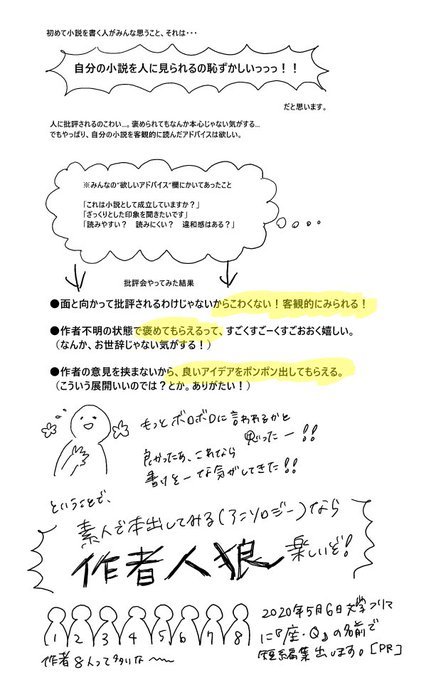 初めて小説を書く人がみんな思うこと、それは・・・
自分の小説を人に見られるの恥ずかしいっっっ！！
だと思います。
人に批評されるのこわい…。褒められてもなんか本心じゃない気がする…
でもやっぱり、自分の小説を客観的に読んだアドバイスは欲しい。
※みんなの"欲しいアドバイス"欄にかいてあったこと
「これは小説として成立していますか？」
「ざっくりとした印象を聞きたいです」
「読みやすい？　読みにくい？　違和感はある？」
批評会やってみた結果
●面と向かって批評されるわけじゃないからこわくない！客観的にみられる！
●作者不明の状態で褒めてもらえるって、すごくすごーくすごおおく嬉しい。
（なんか、お世辞じゃない気がする！）
●作者の意見を挟まないから、良いアイデアをポンポン出してもらえる。
（こういう展開いいのでは？とか。ありがたい！）
もっとボロボロに言われるかと
思ったー!!
良かったあ、これなら
書けそーな気がしてきた!!
ということで、
素人で本出してみる(アンソロジー)なら
作者人狼 楽しいぞ!
1 2 3 4 5 6 7 8
作者8人って多いな〜〜
2020年5月6日文学フリマ
に『座・Q』の名前で
短編集出します。[PR]